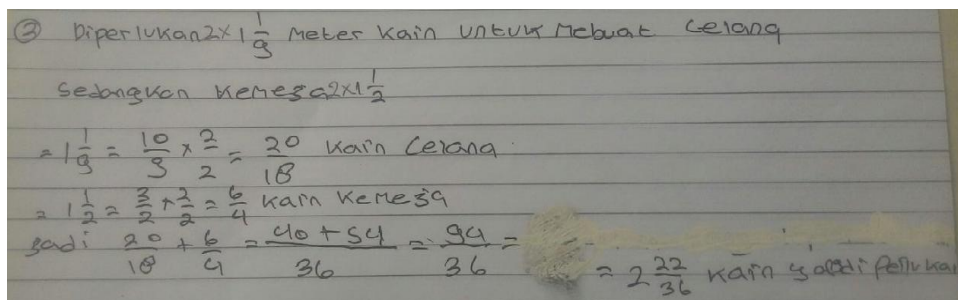 ③ Diperlukan 2 x 1 1/9 Meter kain untuk Mebuat celana
Sedangkan Kemeja 2x1 1/2
= 1 1/9 = 10/9 x 2/2 = 20/18 kain celana
= 1 1/2 = 3/2 x 2/2 = 6/4 kain kemeja
Jadi 20/18 + 6/4 = 40 + 54/36 = 94/36 =
= 2 22/36 kain yg di perluka